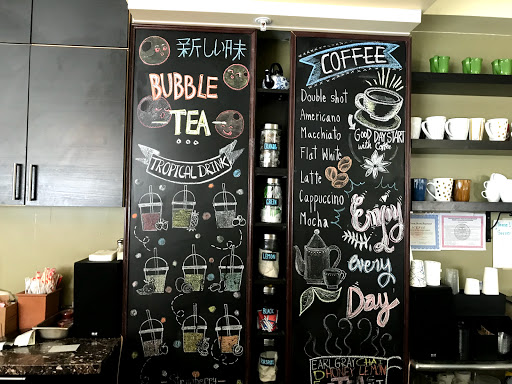 新しい味
BUBBLE
TEA
TROPICAL DRINK
COFFEE
Double shot
Americano
Macchiato
Flat White
Latte
Cappucino
Mocha
GOOD DAY START
with Coffee
Enjoy
every
Day
LEMON
BLACK
EARL GRAY CHAI
HONEY LEMON